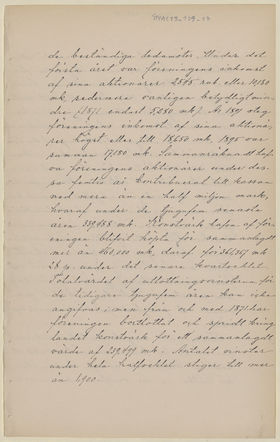 de beständiga ledamöter. Under det
första året var föreningens inkomst
af sina aktionärer 2545 rub. eller 10,180
mk, sedermera vanligen betydligt min-
dre (1871 endast 5,280 mk). År 1891 steg
föreningens inkomst af sina aktionä-
rer högst eller till 18,650 mk, 1895 var
summan 17,150 mk. Sammanräknadt haf-
va föreningens aktionärer under des-
sa femtio år kontribuerat till kassan
med mera än en half miljon mark,
hvaraf under de tjugufem senaste
åren 359,488 mk. Konstverk hafva af före-
ningen blifvit köpta för sammanlagdt
mer än 461,000 mk, däraf för
28 p. under det senare kvartseklet.
Totalvärdet af utlottningsvinsterna för
de tidigare tjugufem åren kan icke
angifvas; men från och med 1871 har
föreningen bortlottat och spridt kring
landet konstverk för ett sammanlagdt
värde af 239,499 mk. Antalet vinster
under hela halfseklet stiger till mer
än 1,900.